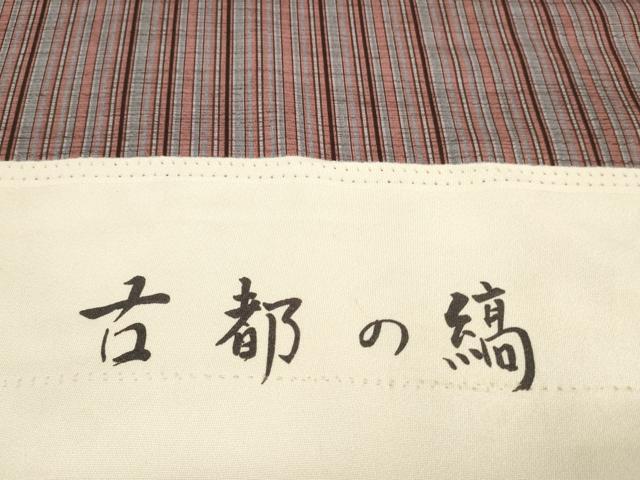 古都の縞